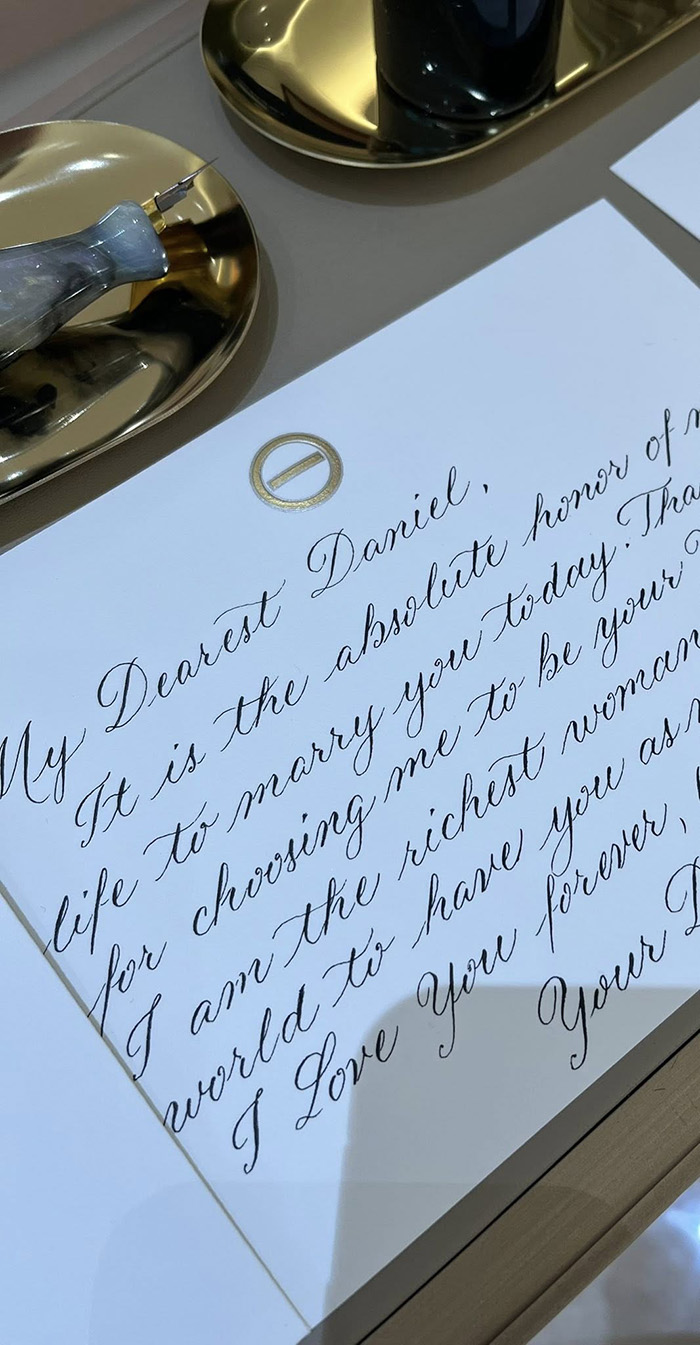 My Dearest Daniel,
It is the absolute honor of
life to marry you today. Tha
for choosing me to be your
I am the richest woman
world to have you as
I Love You forever,
Your